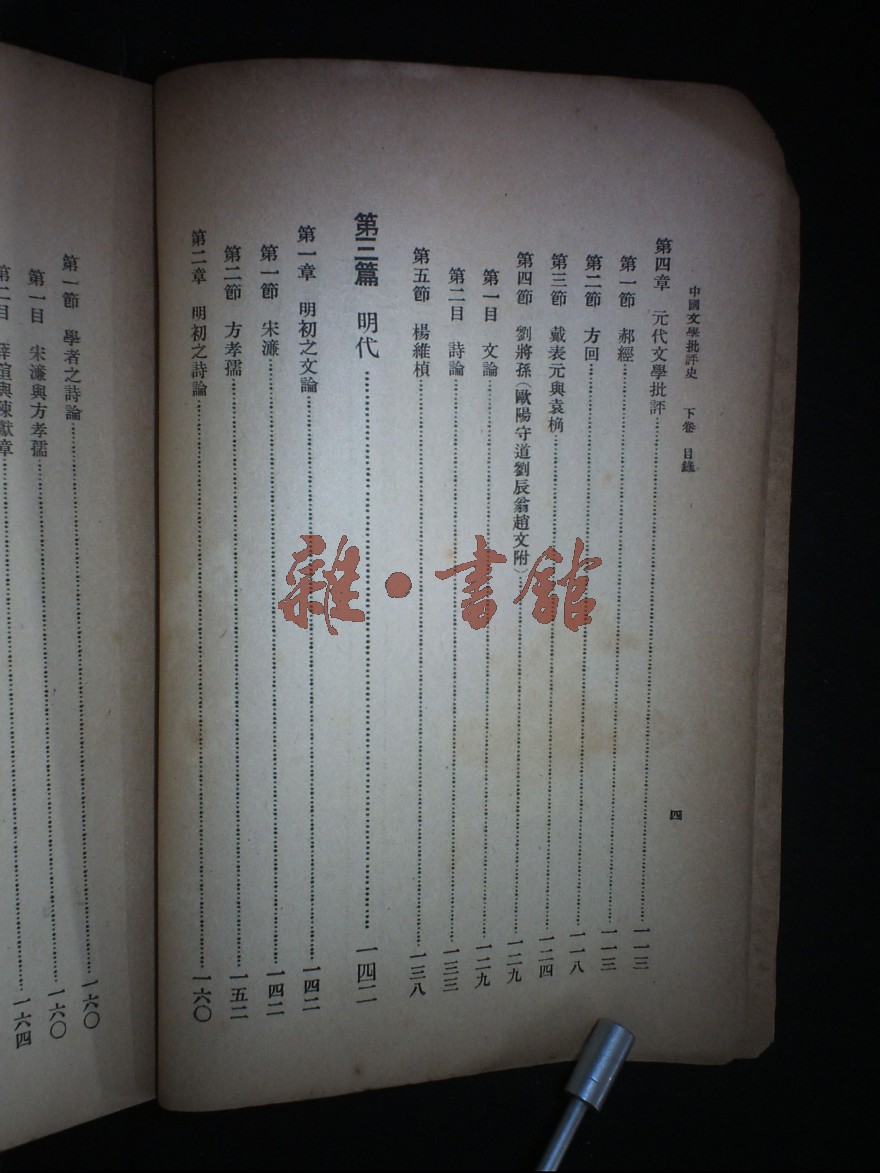 中國文學批評史　下卷　目錄
四
第四章　元代文學批評……一一三
第一節　郝經……一一三
第二節　方回……一一八
第三節　戴表元與袁桷……一二四
第四節　劉將孫（歐陽守道劉辰翁趙文附）……一二九
第一目　文論……一二九
第二目　詩論……一三三
第五節　楊維楨……一三八
第三篇　明代……一四二
第一章　明初之文論……一四二
第一節　宋濂……一四二
第二節　方孝孺……一五二
第二章　明初之詩論……一六〇
第一節　學者之詩論……一六〇
第一目　宋濂與方孝孺……一六〇
第二目　薛瑄與陳獻章……一六四
雜·書館